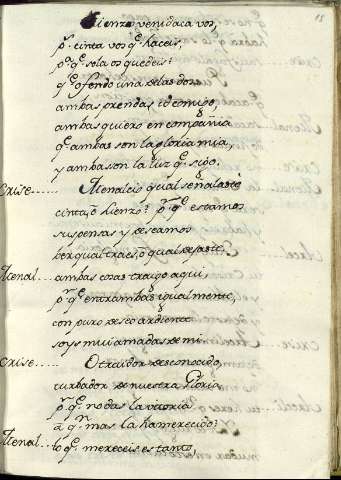 Lienzo venid aca vos,
pr. cinta vos q̃ haceis,
pa. q̃ sola os quedeis?
q̃ ofendo una de las dos
ambas prendas id comigo,
ambas quiero en compañia
q̃ ambas son la gloria mia,
y ambas son la luz q̃ sigo.
Crise..... Atenal es qual señalaste
cinta, o Lienzo? pr. q̃ estamos
suspensas y deseamos
ber qual traes, o qual dejaste.
Atenal... ambas cosas traigo aqui,
pr. q̃ entrambas igualmente,
con puro deseo ardiente
soys mui amadas de mi
Crise..... O traidor desconocido,
turbador de nuestra Gloria
pr. q̃ no das la vitoria
a qn. mas la ha merecido?
Atenal... lo q̃ mereceis es tanto,